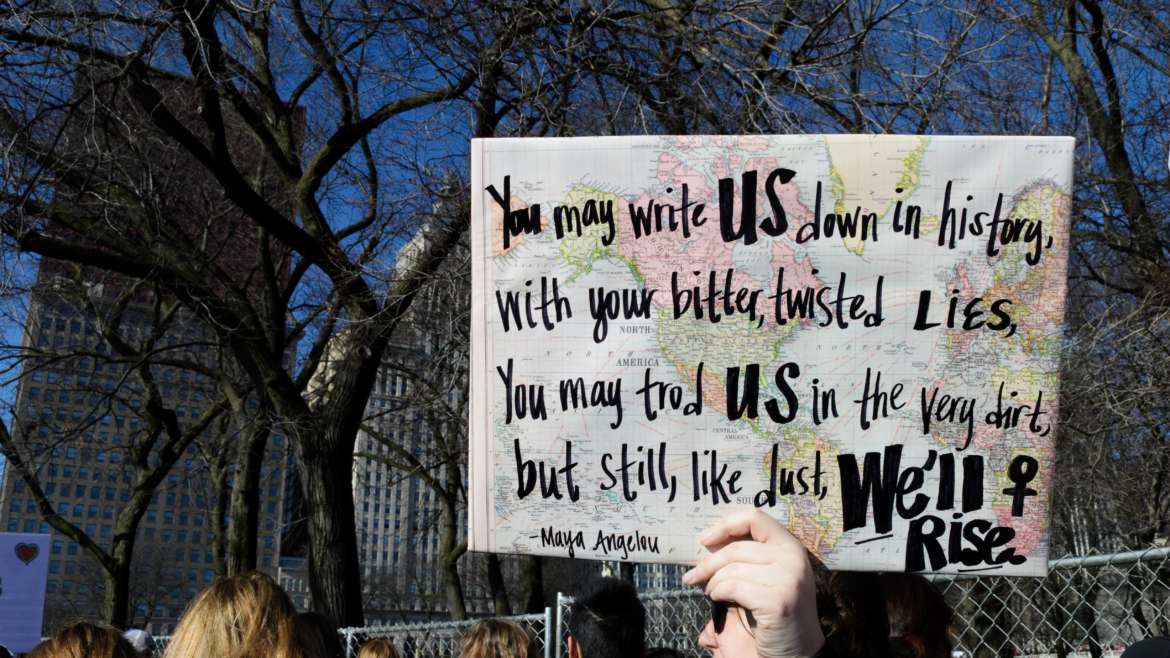 You may write US down in history,
with your bitter, twisted LIES,
You may trod US in the very dirt,
but still, like dust, We'll
RISE.
-Maya Angelou
NORTH
AMERICA
CENTRAL
AMERICA